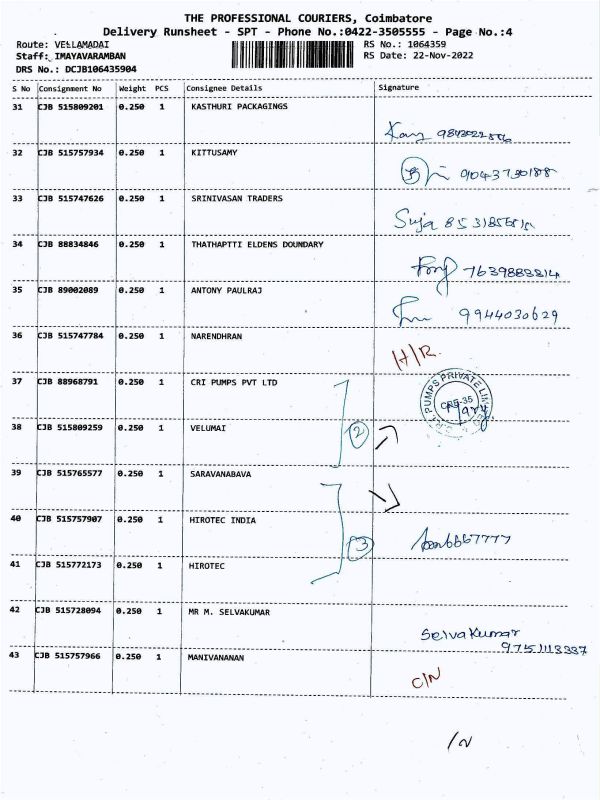 THE PROFESSIONAL COURIERS, Coimbatore
Delivery Runsheet - SPT - Phone No.:0422-3505555 - Page No.:4
Route: VELLAMADAI
RS No.: 1064359
Staff: IMAYAVARAMBAN
RS Date: 22-Nov-2022
DRS No.: DCJB106435904
S No Consignment No Weight PCS Consignee Details Signature
31 CJB 515809201 0.250 1 KASTHURI PACKAGINGS
32 CJB 515757934 0.250 1 KITTUSAMY
9043730188
33 CJB 515747626 0.250 1 SRINIVASAN TRADERS
Suja
34 CJB 88834846 0.250 1 THATHAPTTI ELDENS DOUNDARY
7639883314
35 CJB 89002089 0.250 1 ANTONY PAULRAJ
9944030629
36 CJB 515747784 0.250 1 NARENDHRAN
H/R.
37 CJB 88968791 0.250 1 CRI PUMPS PVT LTD
PUMPS PRIVATE
38 CJB 515809259 0.250 1 VELUMAI
2
39 CJB 515765577 0.250 1 SARAVANABAVA
40 CJB 515757907 0.250 1 HIROTEC INDIA
3
41 CJB 515772173 0.250 1 HIROTEC
42 CJB 515728094 0.250 1 MR M. SELVAKUMAR
Selvakumar
43 CJB 515757966 0.250 1 MANIVANANAN
C/N